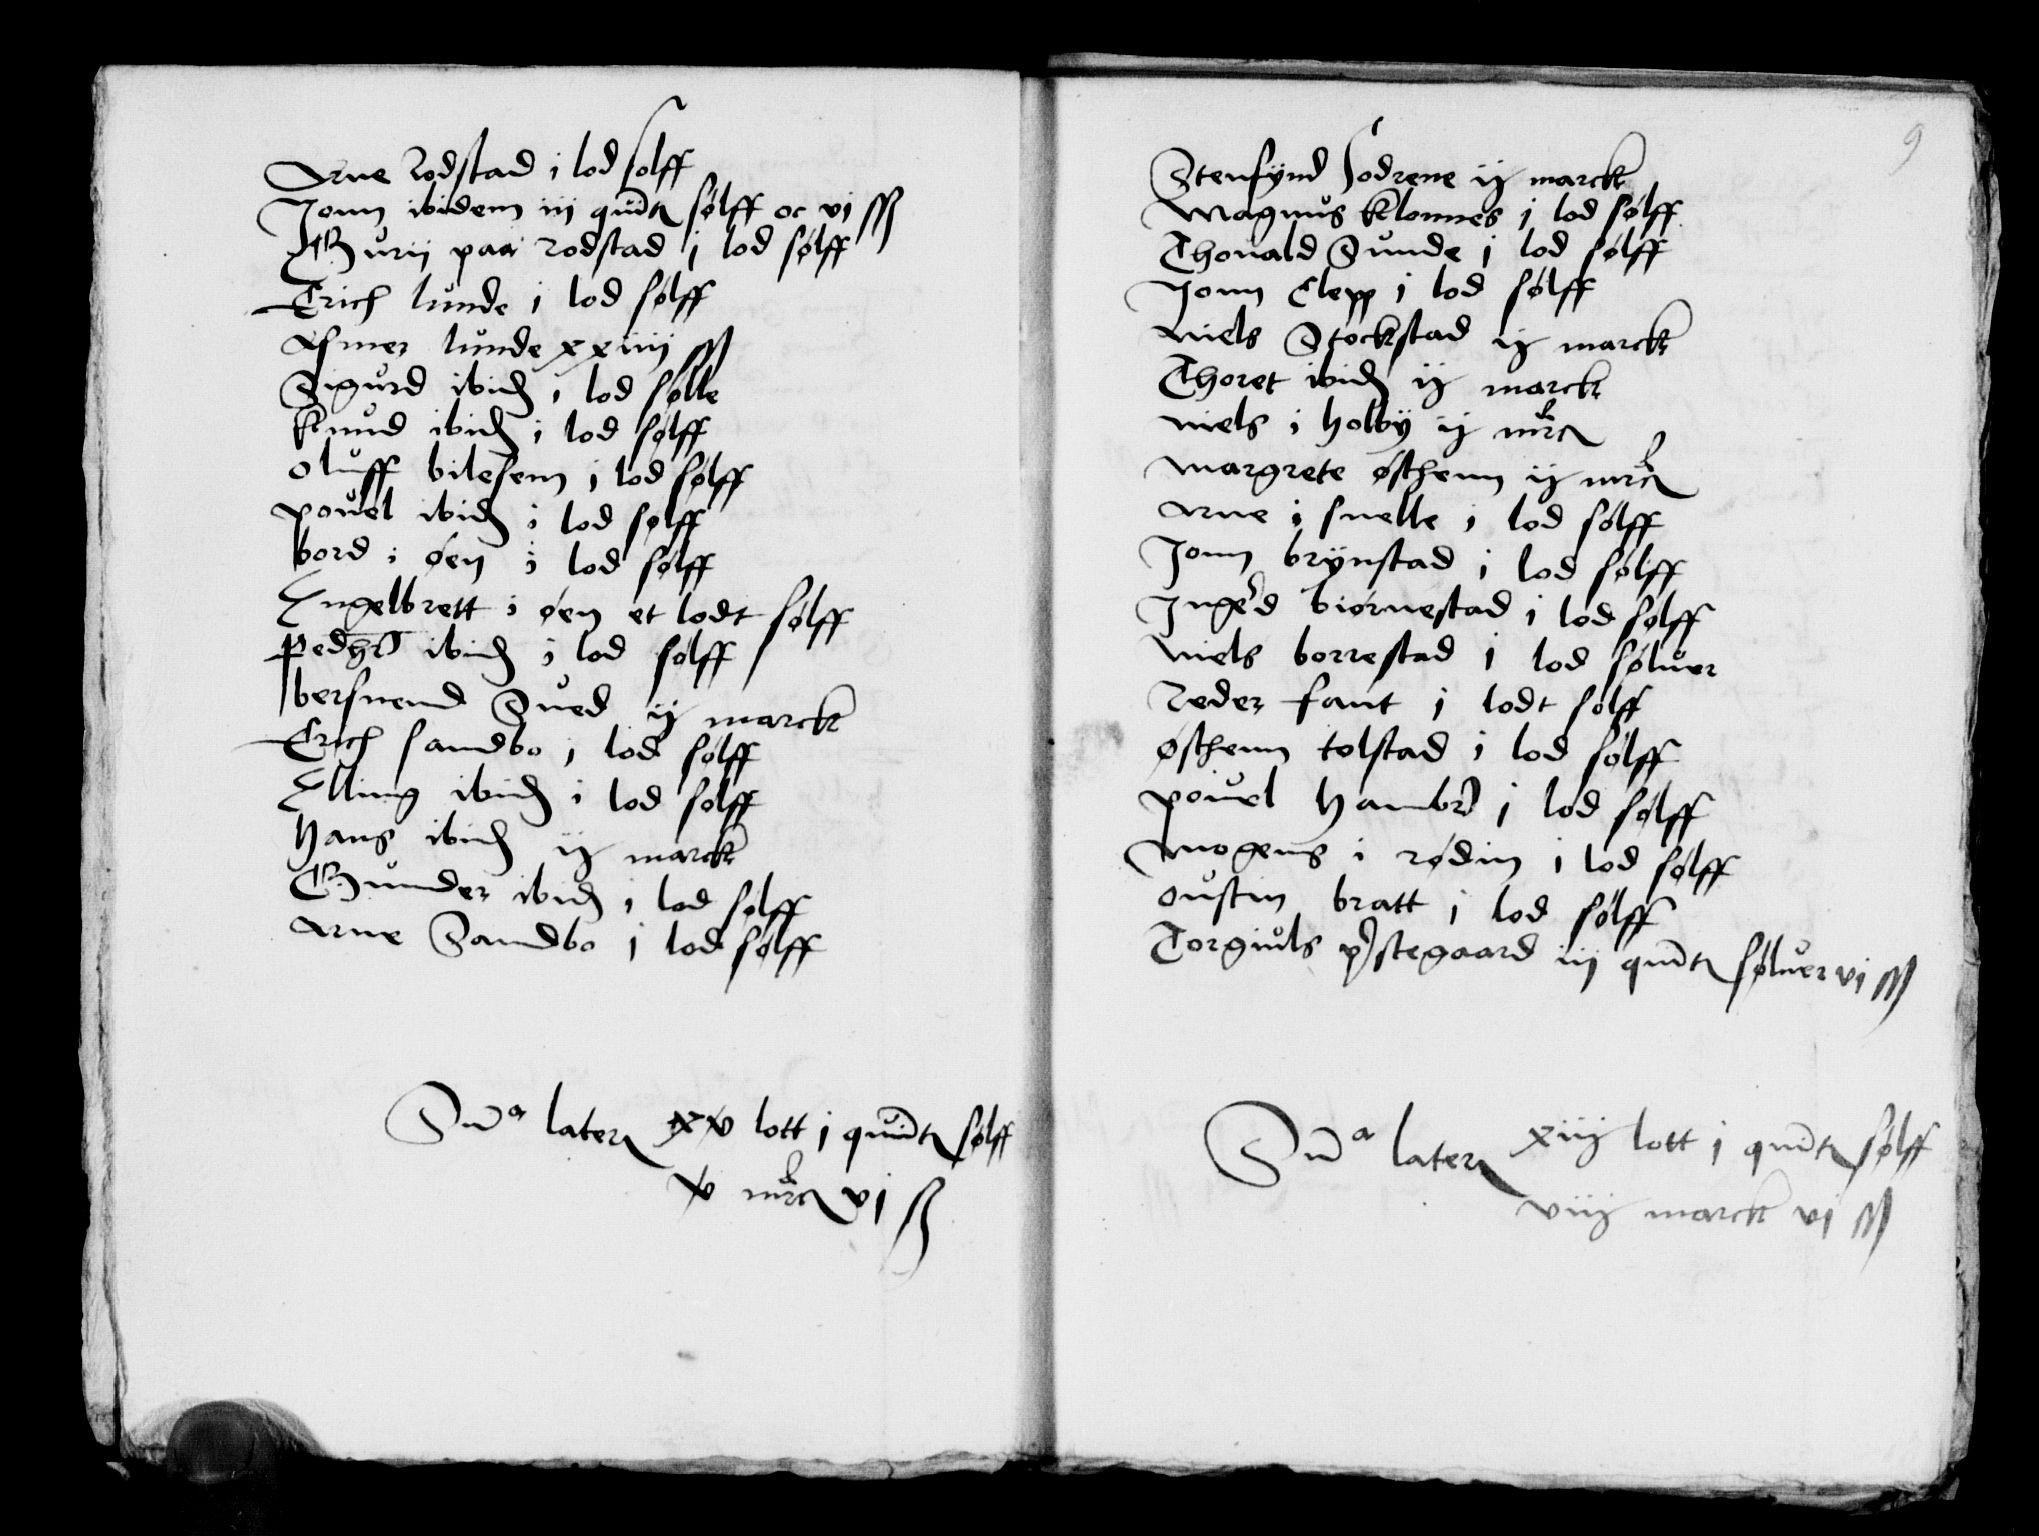 Arne Rodstad i lod sølff
Jonn ibidem iij quintn sølff oc vj ß
Gurij paa rodstad j lod sølff
Erich lunde i lod sølff
Asmer lunde xxiiij ß
Sigurd ibid i lod sølle
Knud ibid i lod sølff
Oluff bilesem i lod sølff
povel ibid i lod sølff
bord i øen i lod sølff
Engelbrett i øen et lodt sølff
Peder ibid i lod sølff
bersuend Sued ij marck
Erich sandbo i lod sølff
Elling ibid i lod sølff
Hans ibid ij marck
Gunder ibid i lod sølff
Arne Sandbo j lod sølff
Sua later xv lott j quintn sølff
v mrc vj ß
9
Stensynd Sodrene ij marck
Magnus klonnes j lod sølff
Thouald Sunde j lod sølff
Jonn Clepp i lod sølff
Niels Stockstad ij marck
Thoret ibid ij marck
Niels i holby ij mrc
Margrete østhenn ij mrc
Arne i snelle i lod sølff
Jonn brynstad i lod sølff
Ingerd biørnestad i lod sølff
Niels borrestad j lod søluer
Reder fant j lodt sølff
østhenn tolstad i lod sølff
povel Hambr j lod sølff
Mogens i rødin i lod sølff
oustin bratt j lod sølff
Torgiuls prestegaard iij quintn søluer vj ß
Sua later xiij lott j quintn sølff
viij marck vj ß